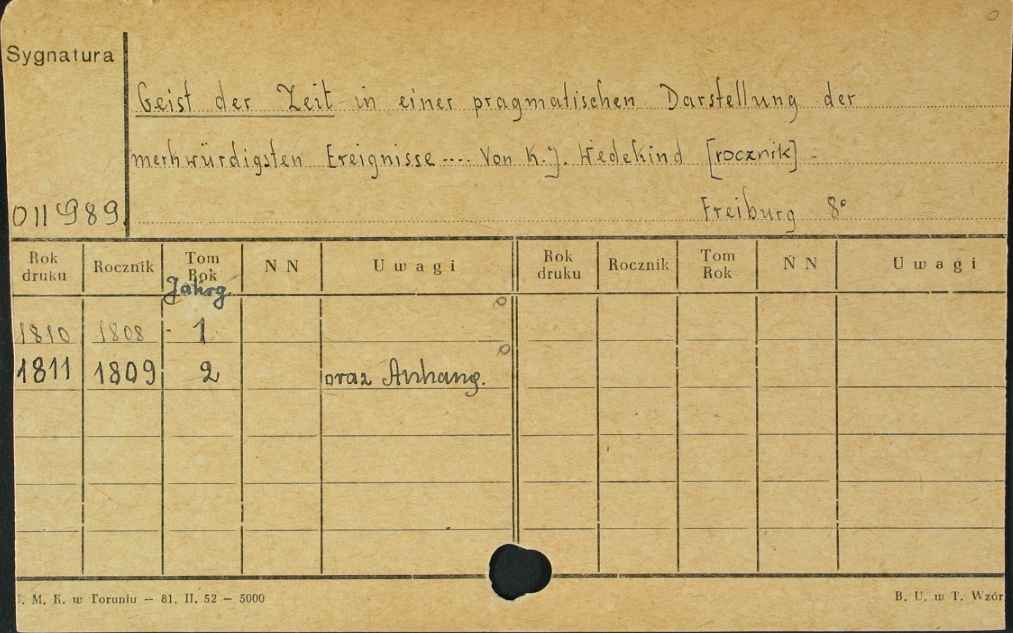 Sygnatura
Geist der Zeit in einer pragmatischen Darstellung der
merkwürdigsten Ereignisse .... Von K. J. Wedekind [rocznik] -
011989.
Freiburg 8°
Rok druku Rocznik Tom Rok N N Uwagi Rok druku Rocznik Tom Rok N N Uwagi
Jahrg.
1810 1808 - 1
1811 1809 2 oraz Anhang.
. M. K. w Toruniu — 81. II. 52 — 5000 B. U. w T. Wzór